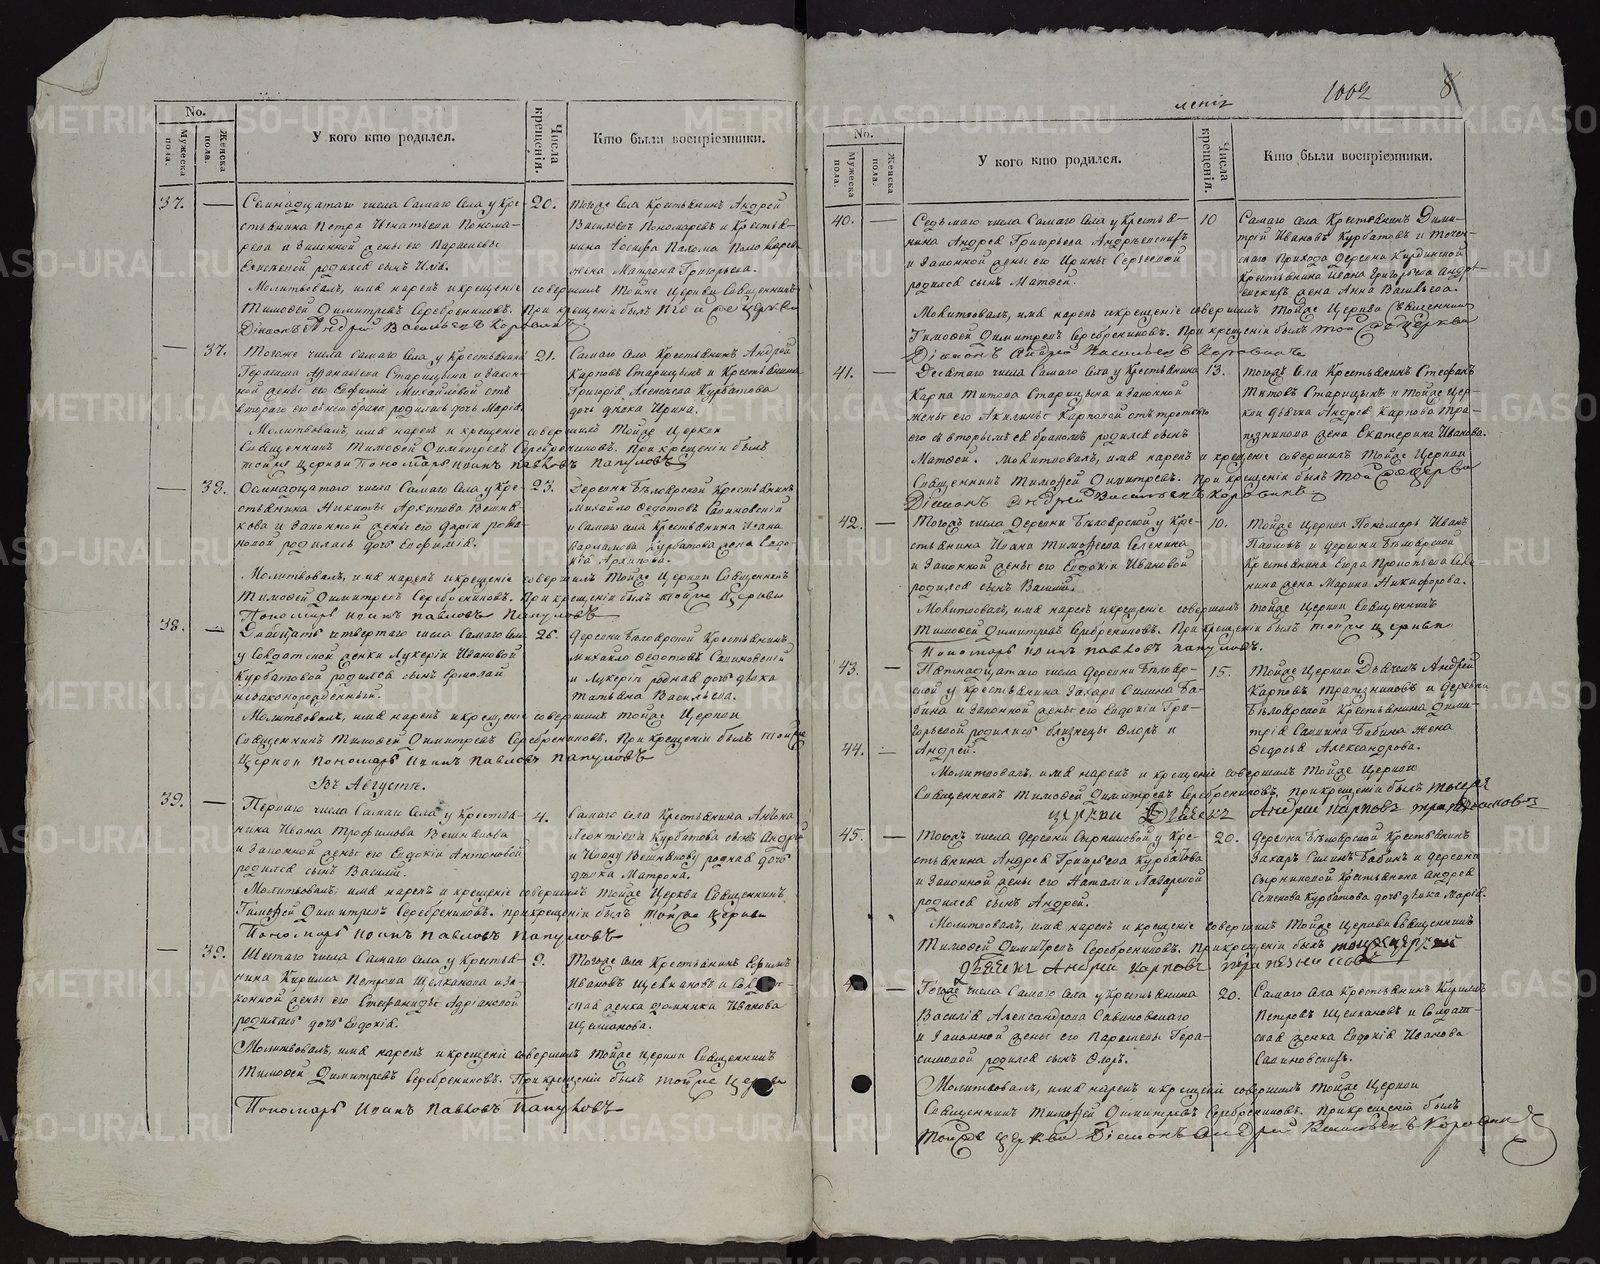 No.
Мужеска пола.
Женска пола.
У кого кто родился.
Числа крещенія.
Кто были воспріемники.
37. — Семнадцатаго числа Самаго Села у Кре- 20. тогоже Села Крестьянинъ Андрей
стьянина Петра Игнатьева Понома- Васильевъ Пономаревъ и Крестья-
рева и Законной жены его Параскевы нина Іосифа Пономарева
родился сынъ Илія. жена Матрона Григорьева.
Молитвовалъ, имя нарекъ и крещеніе совершилъ Тойже Церкви Священникъ
Тимофей Димитревъ Серебрениковъ. При крещеніи былъ Тойже Церкви
Діаконъ Андрей Васильевъ
— 37. Тогоже числа Самаго Села у Крестьянина 21. Самаго Села Крестьянинъ Андрей
Герасима Афанасьева Старицына и Закон- Карповъ Старицынъ и Крестьянина
ной жены его Евфиміи Михайловой отъ Григорія Алексеева Курбатова
втораго его съ нею брака родилась дочь Марія. дочь дѣвка Ирина.
Молитвовалъ, имя нарекъ и крещеніе совершилъ Тойже Церкви
Священникъ Тимофей Димитревъ Серебрениковъ. При крещеніи былъ
тойже Церкви Пономарь Иванъ Павловъ Папуловъ
— 38. Осмнадцатаго числа Самаго Села у Кре- 23. Деревни Бѣлоярской Крестьянинъ
стьянина Никиты Архипова Вешня- Михайло Федотовъ Савиновскій
кова и Законной жены его Дарьи Рома- и Самаго села Крестьянина Ивана
новой родилась дочь Евфимія. Варламова Курбатова жена Евдо-
кія Архипова.
Молитвовалъ, имя нарекъ и крещеніе совершилъ Тойже Церкви Священникъ
Тимофей Димитревъ Серебрениковъ. При крещеніи былъ тойже Церкви
Пономарь Иванъ Павловъ Папуловъ
38. — Двадцать четвертаго числа Самаго Села 26. Деревни Бѣлоярской Крестьянинъ
у Солдатской женки Лукеріи Ивановой Михайло Федотовъ Савиновскій
Курбатовой родился сынъ Ермолай и Лукеріи родная дочь дѣвка
незаконорожденный. Татьяна Васильева.
Молитвовалъ, имя нарекъ и крещеніе совершилъ тойже Церкви
Священникъ Тимофей Димитревъ Серебрениковъ. При крещеніи былъ тойже
Церкви Пономарь Иванъ Павловъ Папуловъ
Въ Августѣ.
39. — Перваго числа Самаго Села у Крестья- 4. Самаго Села Крестьянина Антона
нина Ивана Трофимова Вешнякова Леонтіева Курбатова сынъ Андрей
и Законной жены его Евдокіи Антоновой и Ивану Вешнякову родная дочь
родился сынъ Василій. дѣвка Матрона.
Молитвовалъ, имя нарекъ и крещеніе совершилъ Тойже Церкви Священникъ
Тимофей Димитревъ Серебрениковъ. При крещеніи былъ Тойже Церкви
Пономарь Иванъ Павловъ Папуловъ
— 39. Шестаго числа Самаго Села у Крестья- 9. Тогоже Села Крестьянинъ Ефимъ
нина Кирилла Петрова Щелканова и За- Ивановъ Щелкановъ и Солдат-
конной жены его Стефаниды Адріановой ская женка Домника Иванова
родилась дочь Евдокія. Щелканова.
Молитвовалъ, имя нарекъ и крещеніе совершилъ Тойже Церкви Священникъ
Тимофей Димитревъ Серебрениковъ. При крещеніи былъ тойже Церкви
Пономарь Иванъ Павловъ Папуловъ
1002
8
No.
Мужеска пола.
Женска пола.
У кого кто родился.
Числа крещенія.
Кто были воспріемники.
40. — Седьмаго числа Самаго Села у Крестья- 10 Самаго села Крестьянинъ Дими-
нина Андрея Григорьева трій Ивановъ Курбатовъ и
и Законной жены его Ирины Сергеевой Прихода Деревни
родился сынъ Матвей. Крестьянина Ивана Григорьева
жена Анна Васильева.
Молитвовалъ, имя нарекъ и крещеніе совершилъ Тойже Церкви Священникъ
Тимофей Димитревъ Серебрениковъ. При крещеніи былъ Тойже Церкви
Діаконъ Андрей Васильевъ
41. — Десятаго числа Самаго Села у Крестьянина 13. тогожъ Села Крестьянинъ Стефанъ
Карпа Титова Старицына и Законной Титовъ Старицынъ и Тойже Цер-
жены его Акилины Карповой отъ третьяго кви дьячка Андрея Карпова Тра-
его съ вторымъ ея бракомъ родился сынъ пезникова жена Екатерина Иванова.
Матвей. Молитвовалъ, имя нарекъ и крещеніе совершилъ Тойже Церкви
Священникъ Тимофей Димитревъ. При крещеніи былъ Тойже Церкви
Діаконъ Андрей Васильевъ
42. — Тогожъ числа Деревни Бѣлоярской у Кре- 10. Тойже Церкви Пономарь Иванъ
стьянина Ивана Тимофеева Селенина Павловъ и деревни Бѣлоярской
и Законной жены его Евдокіи Ивановой Крестьянина Егора Прокопьева Селе-
родился сынъ Василій. нина жена Марина Никифорова.
Молитвовалъ, имя нарекъ и крещеніе совершилъ Тойже Церкви Священникъ
Тимофей Димитревъ Серебрениковъ. При крещеніи былъ тойже Церкви
Пономарь Иванъ Павловъ Папуловъ.
43. — Пятнадцатаго числа Деревни Бѣлояр- 15. Тойже Церкви Дьячекъ Андрей
ской у Крестьянина Захара Силина Ба- Карповъ Трапезниковъ и Деревни
бина и Законной жены его Евдокіи Гри- Бѣлоярской Крестьянина Дими-
горьевой родились близнецы Флоръ и трія Силина Бабина жена
44. — Андрей. Федосья Александрова.
Молитвовалъ, имя нарекъ и крещеніе совершилъ Тойже Церкви
Священникъ Тимофей Димитревъ Серебрениковъ. при крещеніи былъ тойже
церкви Дьячекъ Андрей Карповъ Трапезниковъ
45. — Тогожъ числа Деревни Сырниковой у Кре- 20. Деревни Бѣлоярской Крестьянинъ
стьянина Андрея Григорьева Курбатова Захаръ Силинъ Бабинъ и деревни
и Законной жены его Наталіи Лазаревой Сырниковой Крестьянина Андрея
родился сынъ Андрей. Семенова Курбатова дочь дѣвка Марія.
Молитвовалъ, имя нарекъ и крещеніе совершилъ Тойже Церкви Священникъ
Тимофей Димитревъ Серебрениковъ. При крещеніи былъ тойже церкви
дьячекъ Андрей Карповъ Трапезниковъ
— Тогожъ числа Самаго Села у Крестьянина 20. Самаго Села Крестьянинъ Кирилъ
Василія Александрова Савиновскаго Петровъ Щелкановъ и Солдат-
и Законной жены его Параскевы Гера- ская женка Евдокія Иванова
симовой родился сынъ Флоръ. Савиновскихъ.
Молитвовалъ, имя нарекъ и крещеніе совершилъ Тойже Церкви
Священникъ Тимофей Димитревъ Серебрениковъ. При крещеніи былъ
Тойже Церкви Діаконъ Андрей Васильевъ